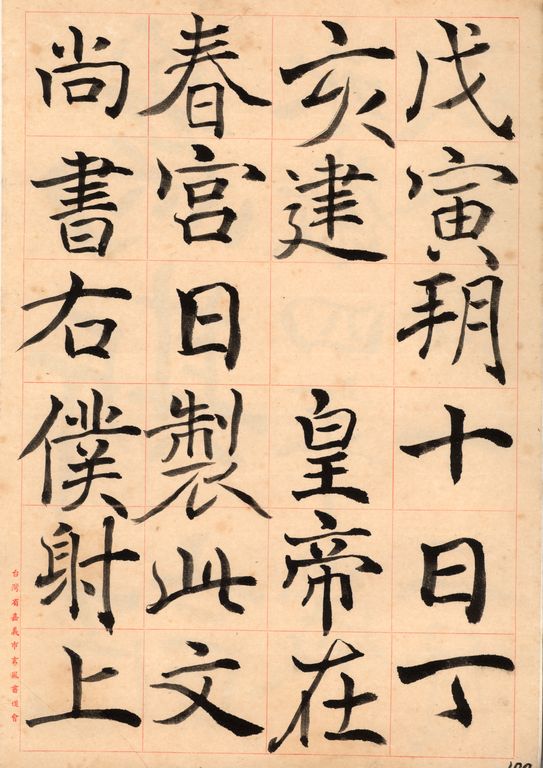 戊寅朔十日丁
亥建　皇帝在
春宮日製此文
尚書右僕射上
台灣省嘉義市玄風書道會